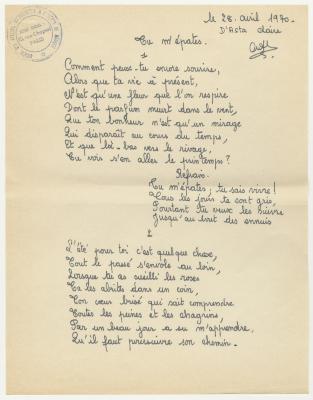 le 28. avril 1970.
D'Asta Claire
Tu m'épates.
1
Comment peux-tu encore sourire,
Alors que ta vie à présent,
N'est qu'une fleur que l'on respire
Dont le parfum meurt dans le vent,
Que ton bonheur n'est qu'un mirage
Qui disparaît au cours du temps,
Et que là-bas vers le rivage,
Tu vois s'en aller le printemps ?
Refrain.
Tu m'épates, tu sais vivre !
Tous les jours te sont gris,
Pourtant tu veux les suivre
Jusqu'au bout des ennuis
2
L'été pour toi c'est quelque chose,
Tout le passé s'envole au loin,
Lorsque tu as cueilli les roses
Tu les abrites dans un coin,
Ton cœur brisé qui sait comprendre
Toutes les peines et les chagrins,
Par un beau jour a su m'apprendre,
Qu'il faut poursuivre son chemin.